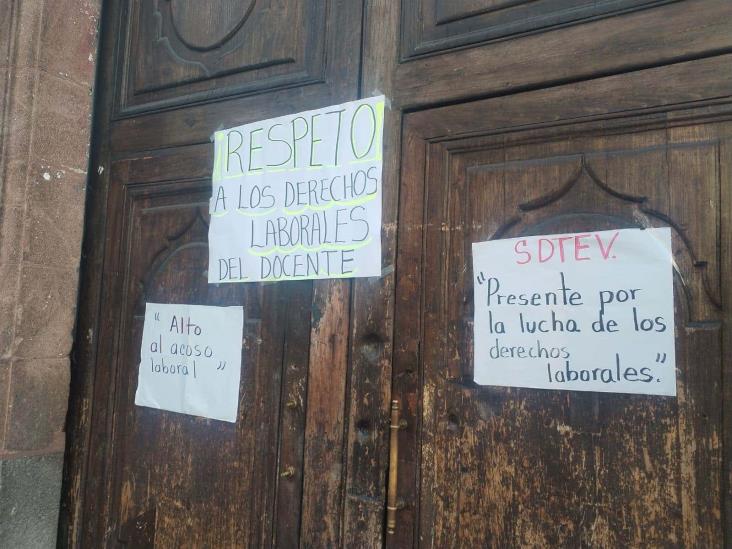 RESPETO
A LOS DERECHOS
LABORALES
DEL DOCENTE
"Alto
al acoso
laboral"
SDTEV.
"Presente por
la lucha de los
derechos
laborales."